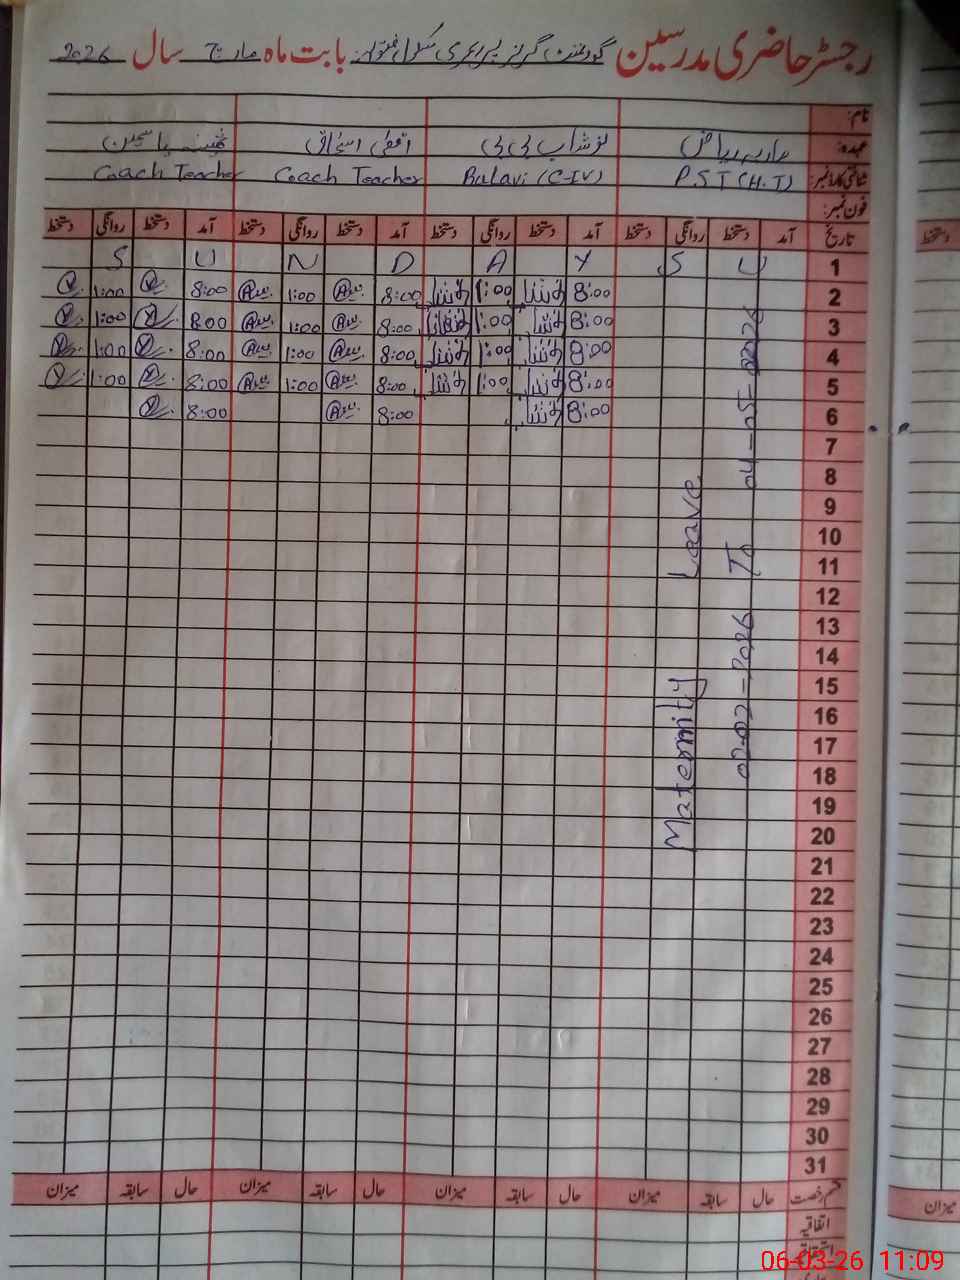 رجسٹر حاضری مدرسین گورنمنٹ گرلز پرائمری سکول بابت ماہ مارچ سال 2026
نام:
عہدہ: ماریہ ریاض نوشابہ بی بی اقصٰی اسحاق ثمینہ یاسمین
شناختی کارڈ نمبر: P.S.T (H.T) Bulavi (C-IV) Coach Teacher Coach Teacher
فون نمبر:
تاریخ آمد دستخط روانگی دستخط آمد دستخط روانگی دستخط آمد دستخط روانگی دستخط آمد دستخط روانگی دستخط
1 S U N D A Y S U
2 8:00 1:00 8:00 1:00 8:00 1:00
3 8:00 1:00 8:00 1:00 8:00 1:00
4 8:00 1:00 8:00 1:00 8:00 1:00
5 8:00 1:00 8:00 1:00 8:00 1:00
6 8:00 8:00 8:00
7
8
9
10
11
12
13
14
15
16
17
18
19
20
21
22
23
24
25
26
27
28
29
30
31
Maternity Leave
To 04-05-2026
قسم رخصت حال سابقہ میزان حال سابقہ میزان حال سابقہ میزان حال سابقہ میزان
اتفاقیہ
دستخط
میزان
06-03-26 11:09